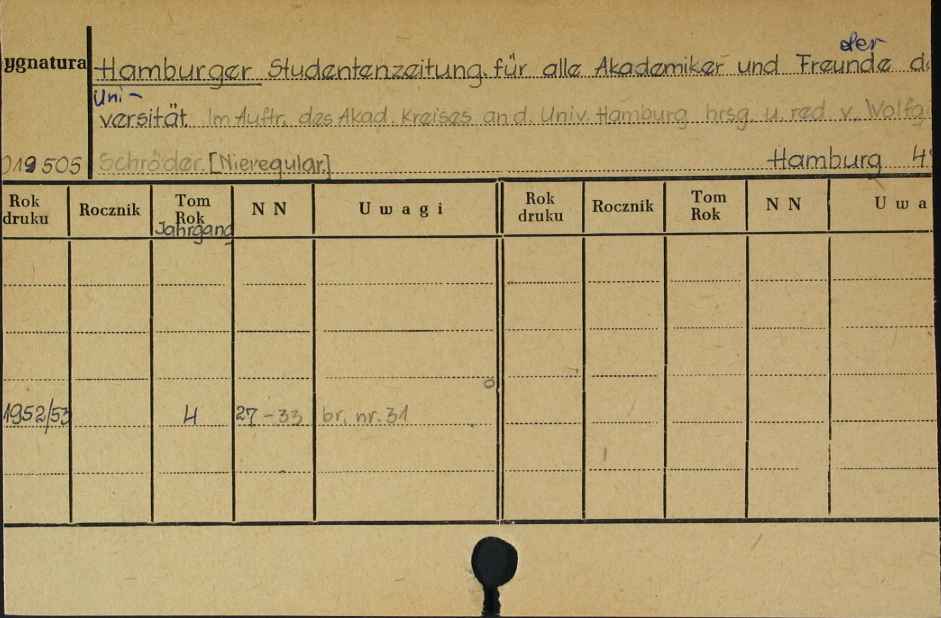 der
ygnatura Hamburger Studentenzeitung. für alle Akademiker und Freunde d
Uni-
versität Im Auftr. des Akad. Kreises an d. Univ. Hamburg hrsg. u. red. v. Wolfg
019505 Schröder. [Nieregular.] Hamburg 4
Rok druku Rocznik Tom Rok Jahrgang N N Uwagi Rok druku Rocznik Tom Rok N N Uwa
1952/53 4 27-33 br. nr. 31